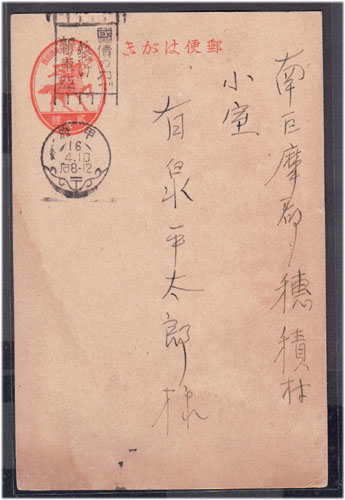 郵便はがき
國債の力だ
甲府
16
4.10
后8-12
南巨摩郡穂積村
小室
有泉平太郎様